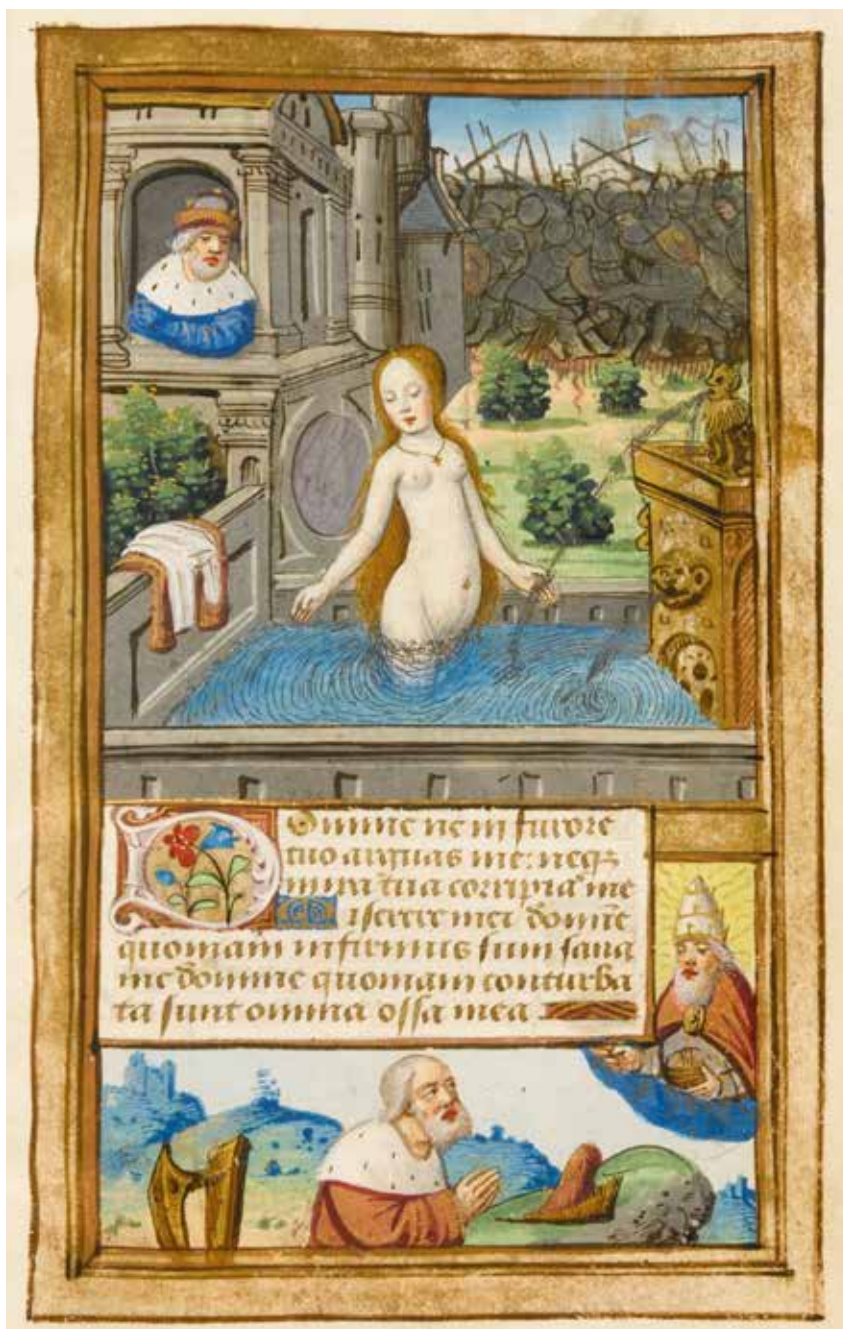 Domine ne in furore
tuo arguas me: neqꝫ
in ira tua corripiaˢ me
Miserere mei domīe
quoniam infirmus sum sana
me domine quoniam conturba
ta sunt omnia ossa mea